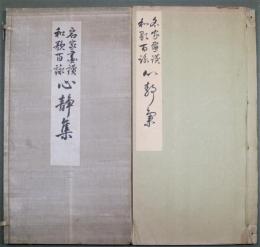 名家画讃
和歌百詠
心静集
名家画讃
和歌百詠
心静集